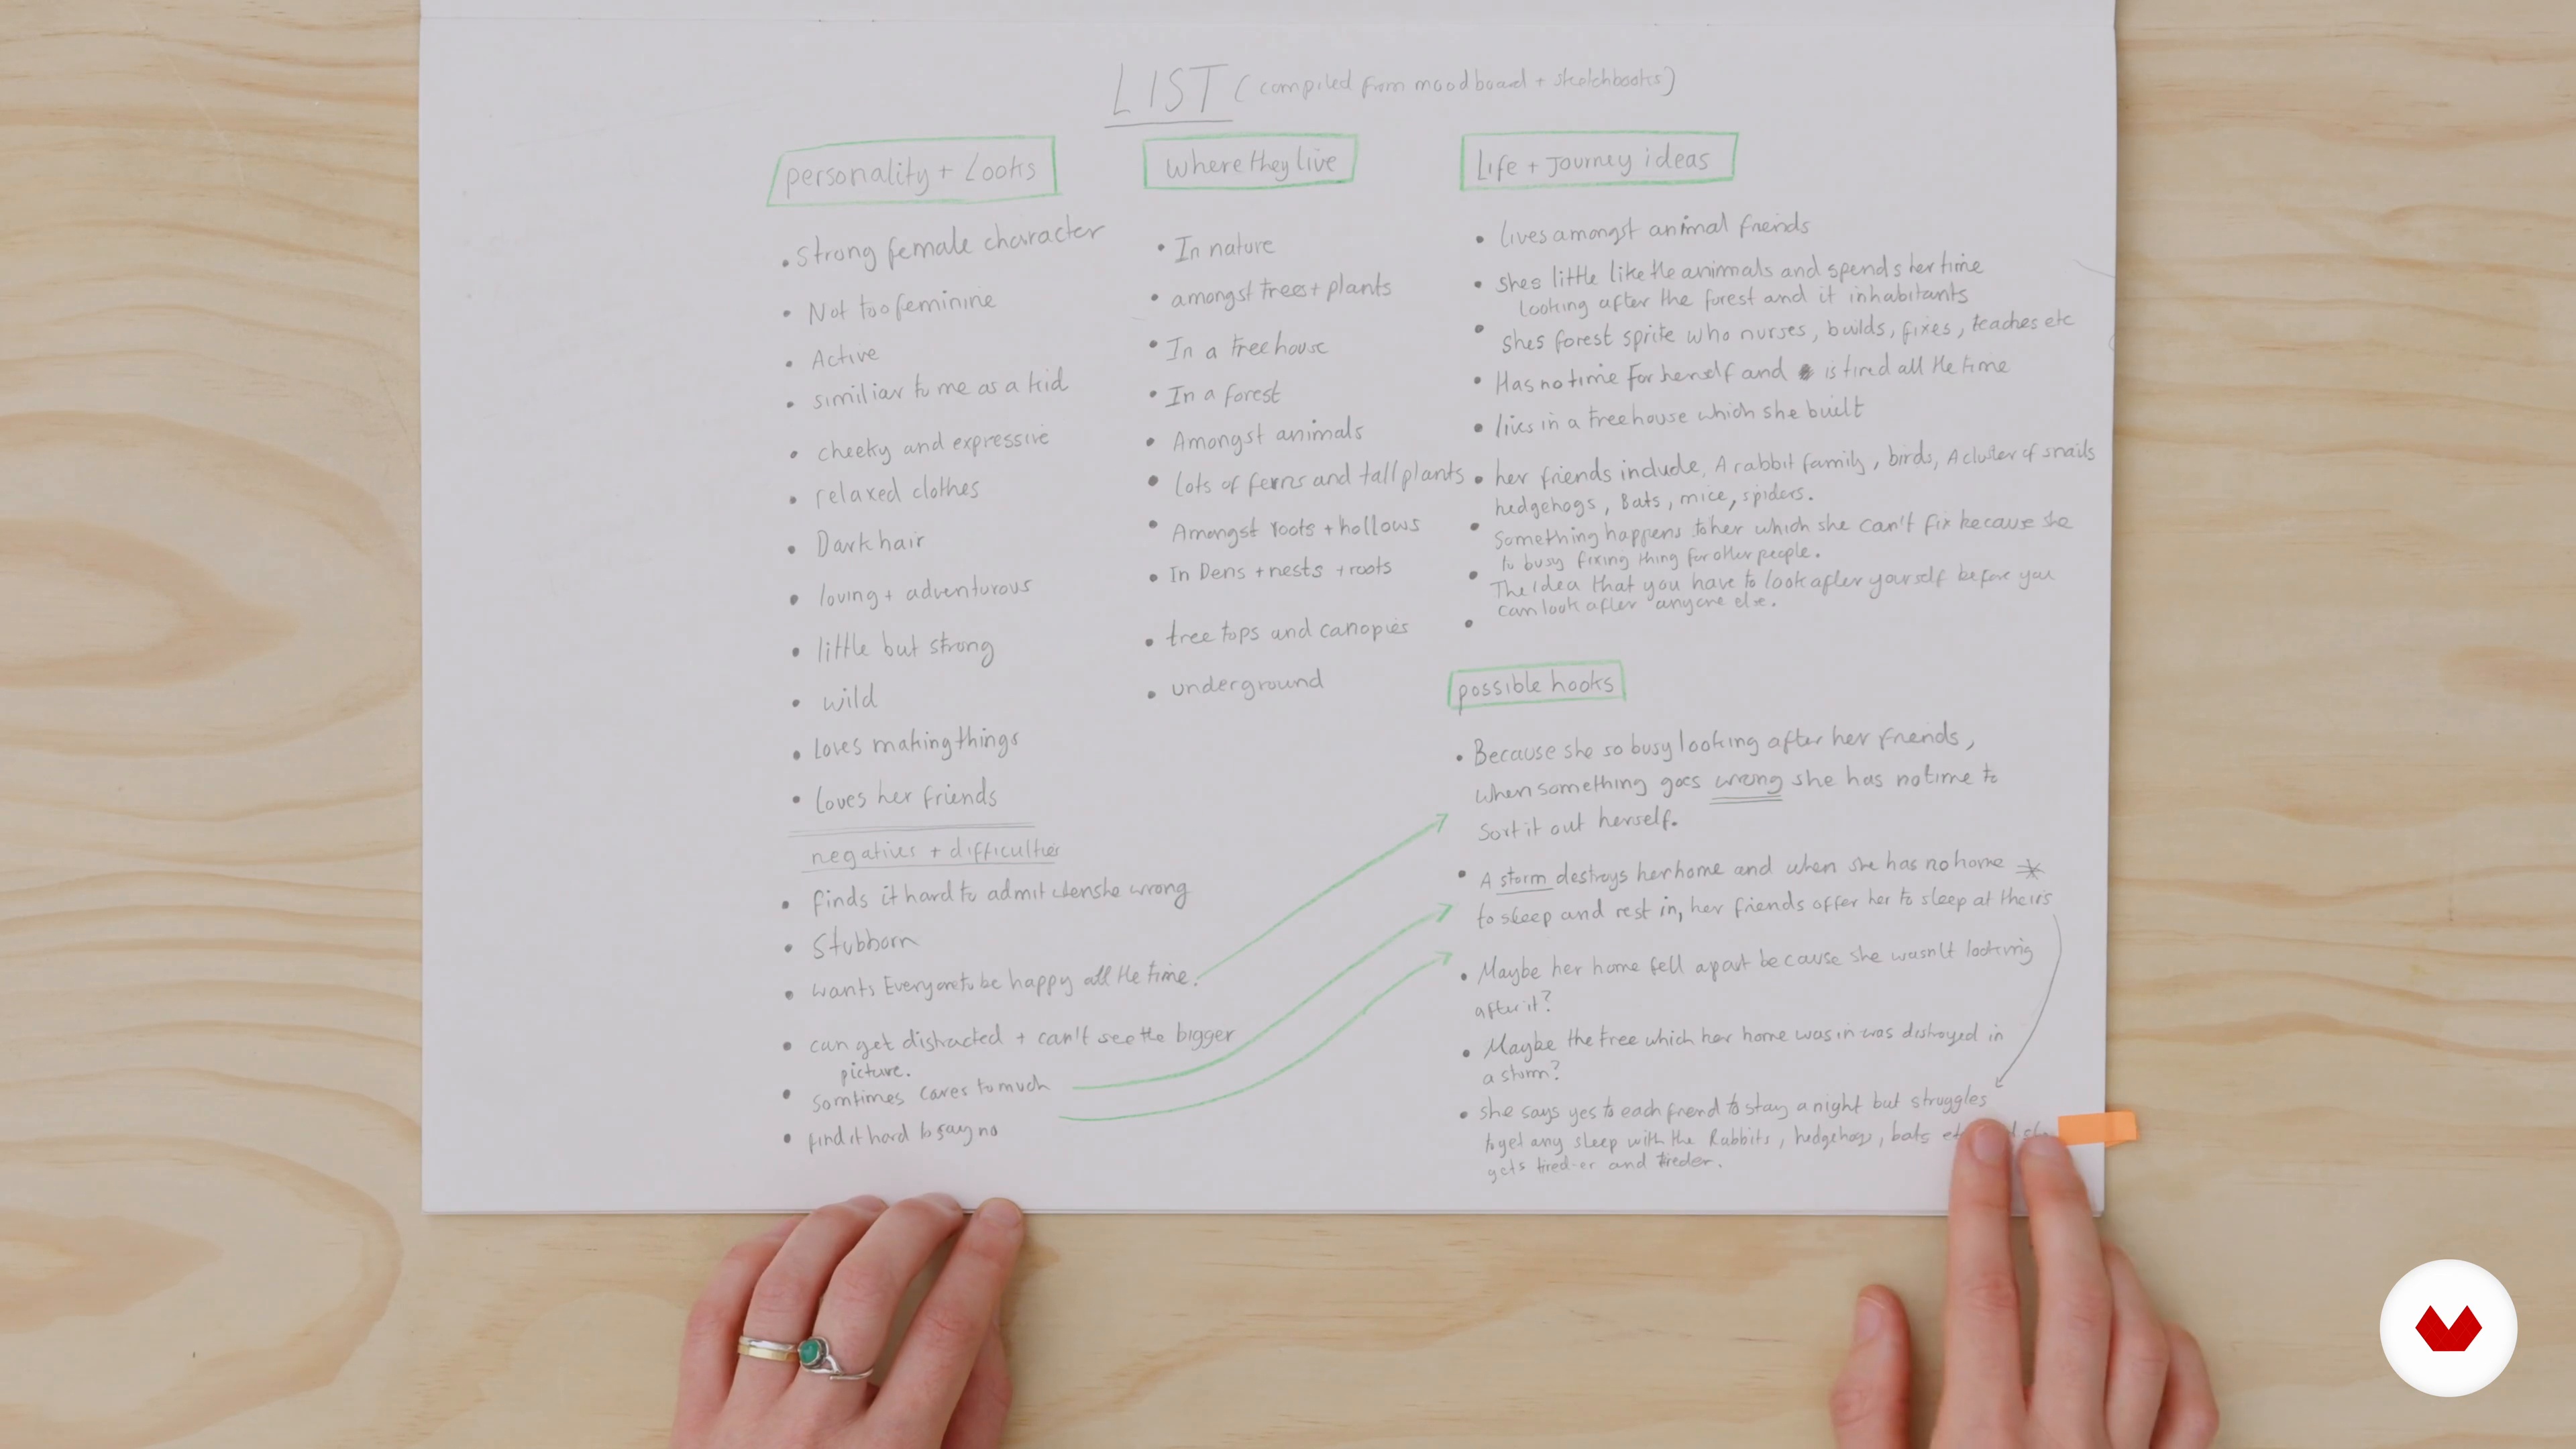 LIST (compiled from moodboard + sketchbooks)
personality + Looks
• strong female character
• Not too feminine
• Active
• similiar to me as a kid
• cheeky and expressive
• relaxed clothes
• Dark hair
• loving + adventurous
• little but strong
• wild
• Loves making things
• Loves her friends
negatives + difficulties
• finds it hard to admit when she wrong
• Stubborn
• wants Everyone to be happy all the time.
• can get distracted + can't see the bigger
picture.
• Somtimes cares to much
• find it hard to say no
where they live
• In nature
• amongst trees + plants
• In a treehouse
• In a forest
• Amongst animals
• Lots of ferns and tall plants
• Amongst roots + hollows
• In Dens + nests + roots
• tree tops and canopies
• underground
Life + Journey ideas
• lives amongst animal friends
• shes little like the animals and spends her time
looking after the forest and it inhabitants
• shes forest sprite who nurses, builds, fixes, teaches etc
• Has no time for herself and is tired all the time
• lives in a treehouse which she built
• her friends include, A rabbit family, birds, A cluster of snails
hedgehogs, Bats, mice, spiders.
• Something happens to her which she can't fix because she
to busy fixing thing for other people.
• The idea that you have to look after yourself before you
can look after anyone else.
•
possible hooks
• Because she so busy looking after her friends,
when something goes wrong she has no time to
sort it out herself.
• A storm destroys her home and when she has no home *
to sleep and rest in, her friends offer her to sleep at theirs
• Maybe her home fell apart because she wasn't looking
after it?
• Maybe the tree which her home was in was distroyed in
a storm?
• she says yes to each friend to stay a night but struggles
to get any sleep with the Rabbits, hedgehogs, bats
gets tired-er and tireder.